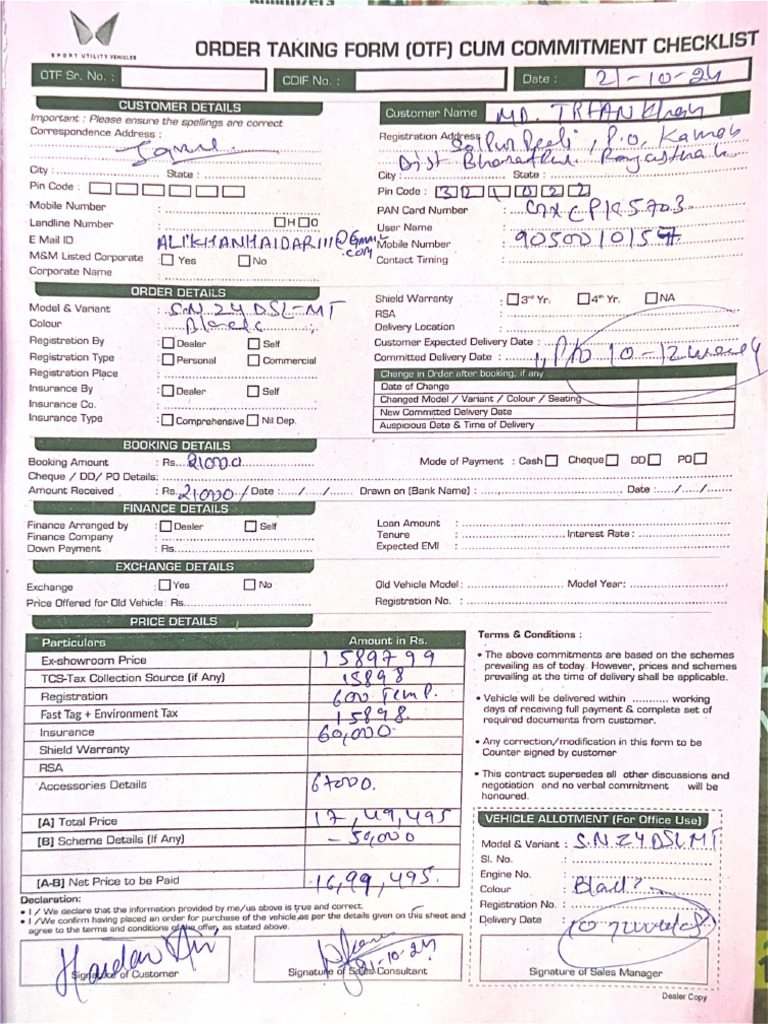 SPORT UTILITY VEHICLES
ORDER TAKING FORM (OTF) CUM COMMITMENT CHECKLIST
OTF Sr. No. :
CDIF No. :
Date : 21-10-24
CUSTOMER DETAILS
Important : Please ensure the spellings are correct
Correspondence Address :
City : State :
Pin Code :
Mobile Number :
Landline Number : H O
E Mail ID : ALIKHANHAIDAR111@Gmail.com
M&M Listed Corporate : Yes No
Corporate Name :
Customer Name MD. IRFAN Khan
Registration Address , P.O, Kaman
Dist Bharatpur Rajasthan
City : State :
Pin Code : 321022
PAN Card Number :
User Name :
Mobile Number : 9050010157
Contact Timing :
ORDER DETAILS
Model & Variant : S.N. Z4 DSL-MT
Colour : Black
Registration By : Dealer Self
Registration Type : Personal Commercial
Registration Place :
Insurance By : Dealer Self
Insurance Co. :
Insurance Type : Comprehensive Nil Dep.
Shield Warranty : 3rd Yr. 4th Yr. NA
RSA :
Delivery Location :
Customer Expected Delivery Date :
Committed Delivery Date : 10-12 weeks
Change in Order after booking, if any
Date of Change
Changed Model / Variant / Colour / Seating
New Committed Delivery Date
Auspicious Date & Time of Delivery
BOOKING DETAILS
Booking Amount : Rs. 21000
Mode of Payment : Cash Cheque DD PO
Cheque / DD/ PO Details:
Amount Received : Rs. 21000/ Date : / / Drawn on (Bank Name) : Date : / /
FINANCE DETAILS
Finance Arranged by : Dealer Self
Finance Company :
Down Payment : Rs.
Loan Amount :
Tenure : Interest Rate :
Expected EMI :
EXCHANGE DETAILS
Exchange : Yes No
Price Offered for Old Vehicle: Rs.
Old Vehicle Model : Model Year:
Registration No. :
PRICE DETAILS
Particulars Amount in Rs.
Ex-showroom Price 1589799
TCS-Tax Collection Source (if Any) 15898
Registration 600 Temp.
Fast Tag + Environment Tax 15898.
Insurance 60,000
Shield Warranty
RSA
Accessories Details 67000.
[A] Total Price 17,49,495
[B] Scheme Details (If Any) - 50,000
[A-B] Net Price to be Paid 16,99,495.
Terms & Conditions :
• The above commitments are based on the schemes
prevailing as of today. However, prices and schemes
prevailing at the time of delivery shall be applicable.
• Vehicle will be delivered within ........... working
days of receiving full payment & complete set of
required documents from customer.
• Any correction/modification in this form to be
Counter signed by customer
• This contract supersedes all other discussions and
negotiation and no verbal commitment will be
honoured.
VEHICLE ALLOTMENT (For Office Use)
Model & Variant : S.N. Z4 DSL MT
Sl. No. :
Engine No. :
Colour : Black
Registration No. :
Delivery Date :
Declaration:
• I / We declare that the information provided by me/us above is true and correct.
• I /We confirm having placed an order for purchase of the vehicle as per the details given on this sheet and
agree to the terms and conditions of the offer, as stated above.
Haidar Ali
Signature of Customer
21-10-24
Signature of Sales Consultant
Signature of Sales Manager
Dealer Copy